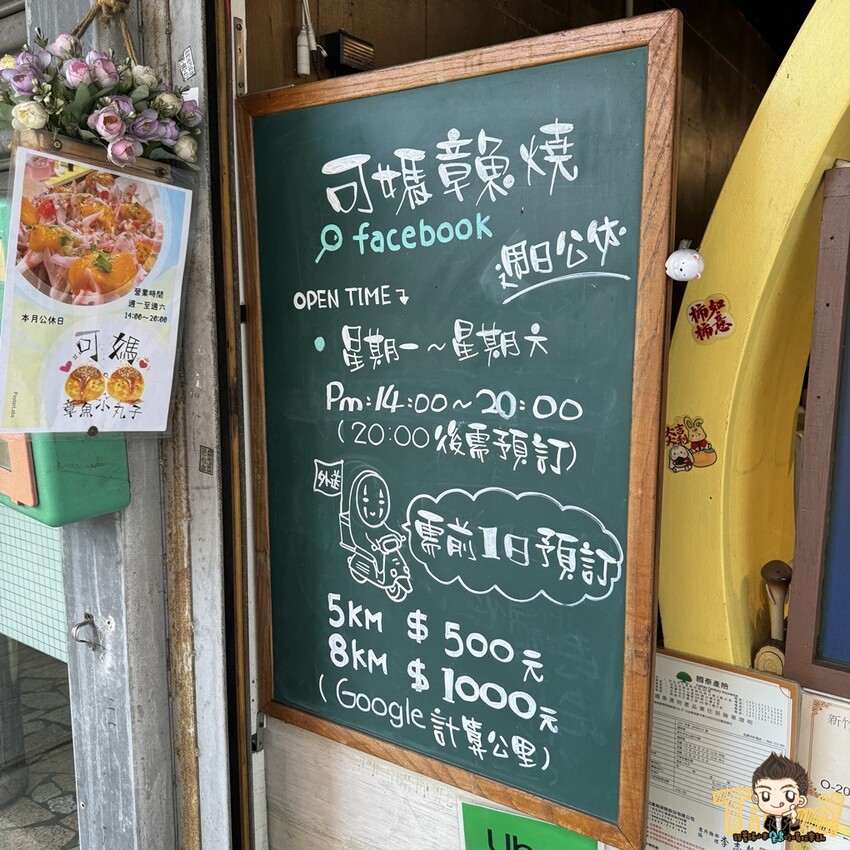 可媽章魚燒
facebook
週日公休
OPEN TIME
星期一~星期六
Pm:14:00~20:00
(20:00後需預訂)
外送
需前1日預訂
5KM $500元
8KM $1000元
(Google計算公里)
營業時間
週一至週六
14:00~20:00
本月公休日
可媽
章魚小丸子
柿柿如意
大吉大利
國泰產險
新竹
O-20